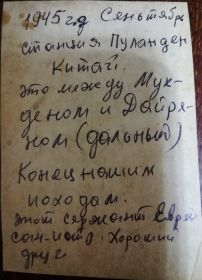 1945 год Сентябрь
станция Пуланден
Китай.
это между Мук-
деном и Дайре-
ном (дальный)
Конец нашим
походам.
этот сержант Еврей
Хороший
друг